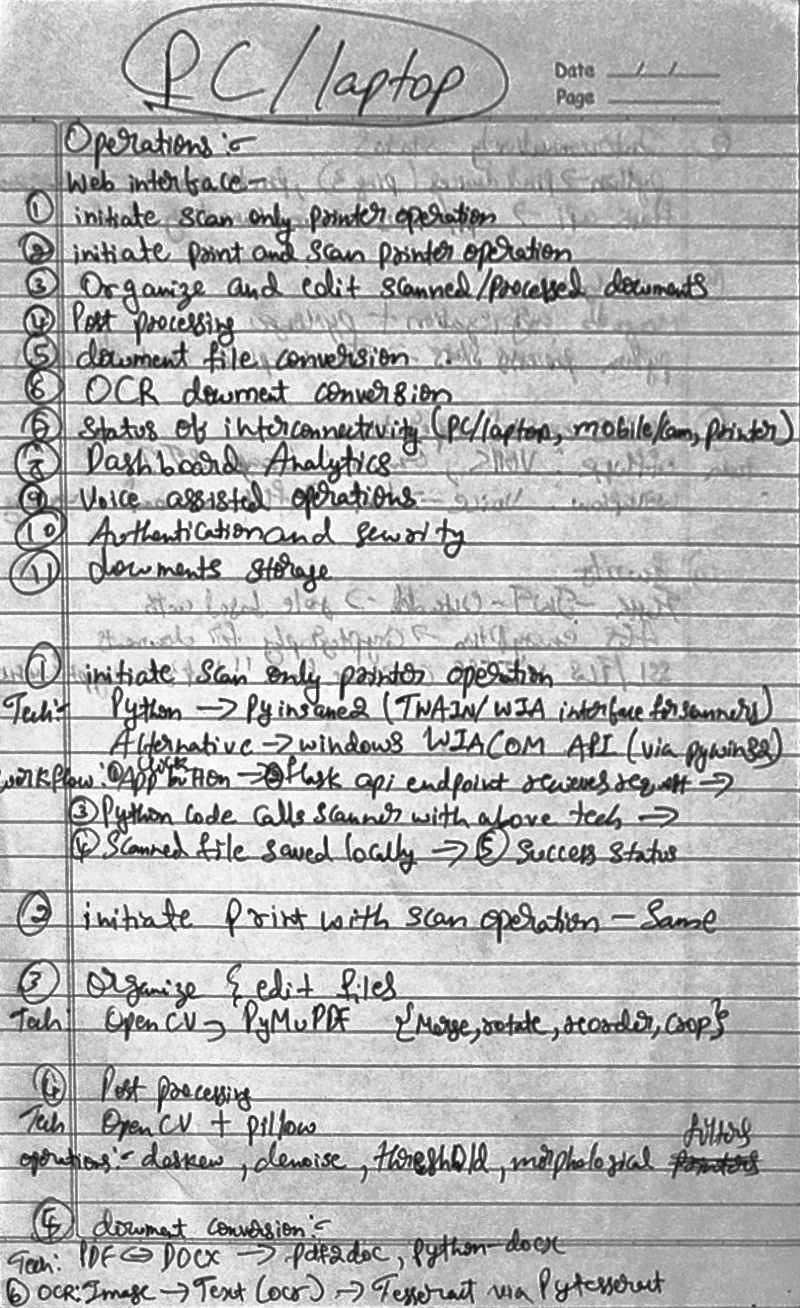 PC/laptop
Date / /
Page
Operations :-
Web interface -
① initiate scan only printer operation
② initiate print and scan printer operation
③ Organize and edit scanned/processed documents
④ Post processing
⑤ document file conversion
⑥ OCR document conversion
Status of interconnectivity (PC/laptop, mobile/cam, printer)
Dashboard Analytics
⑨ Voice assisted operations
⑩ Authentication and security
⑪ documents storage
① initiate scan only printer operation
Tech:- Python → Pyinsane2 (TWAIN/WIA interface for scanners)
Alternative → windows WIACOM API (via pywin32)
workflow: ① APP button clicks → ② flask api endpoint receives request →
③ Python code calls scanner with above tech →
④ Scanned file saved locally → ⑤ Success Status
② initiate Print with scan operation - Same
③ Organize & edit files
Tech OpenCV → PyMuPDF {Merge, rotate, reorder, crop}
④ Post processing
Tech OpenCV + pillow
operations:- deskew, denoise, threshold, morphological filters
⑤ document conversion:-
Tech: PDF ⇔ DOCX → Pdf2doc, Python-docx
⑥ OCR: Image → Text (ocr) → Tesseract via Pytesseract